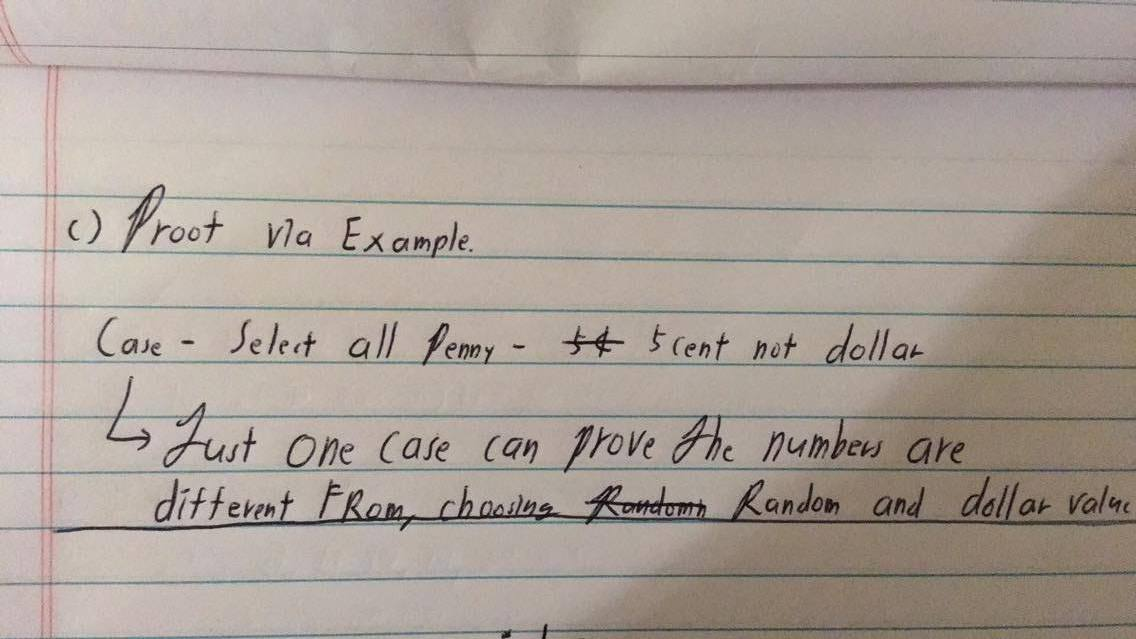 c) Proot via Example.
Case - Select all Penny - 5¢ 5 cent not dollar
↳ Just one case can prove the numbers are
different FRom, choosing Randomn Random and dollar value